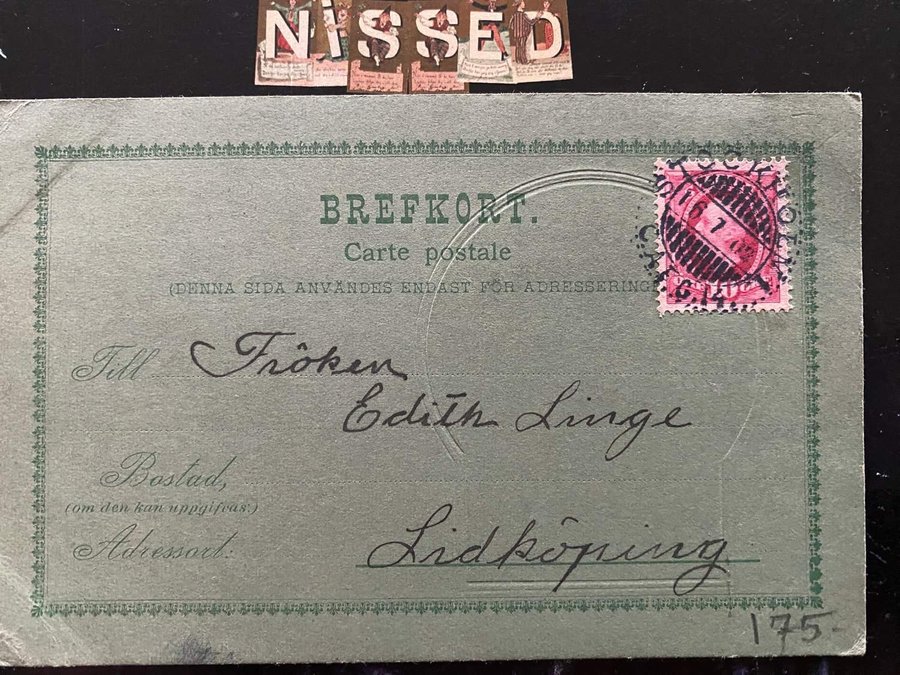 NISSED
BREFKORT.
Carte postale
(DENNA SIDA ANVÄNDES ENDAST FÖR ADRESSERING
STOCKHOLM 1
16 7
C. AFG. 14.
Till Fröken
Edith Linge
Bostad,
(om den kan uppgifvas:)
Adressort: Lidköping
175-